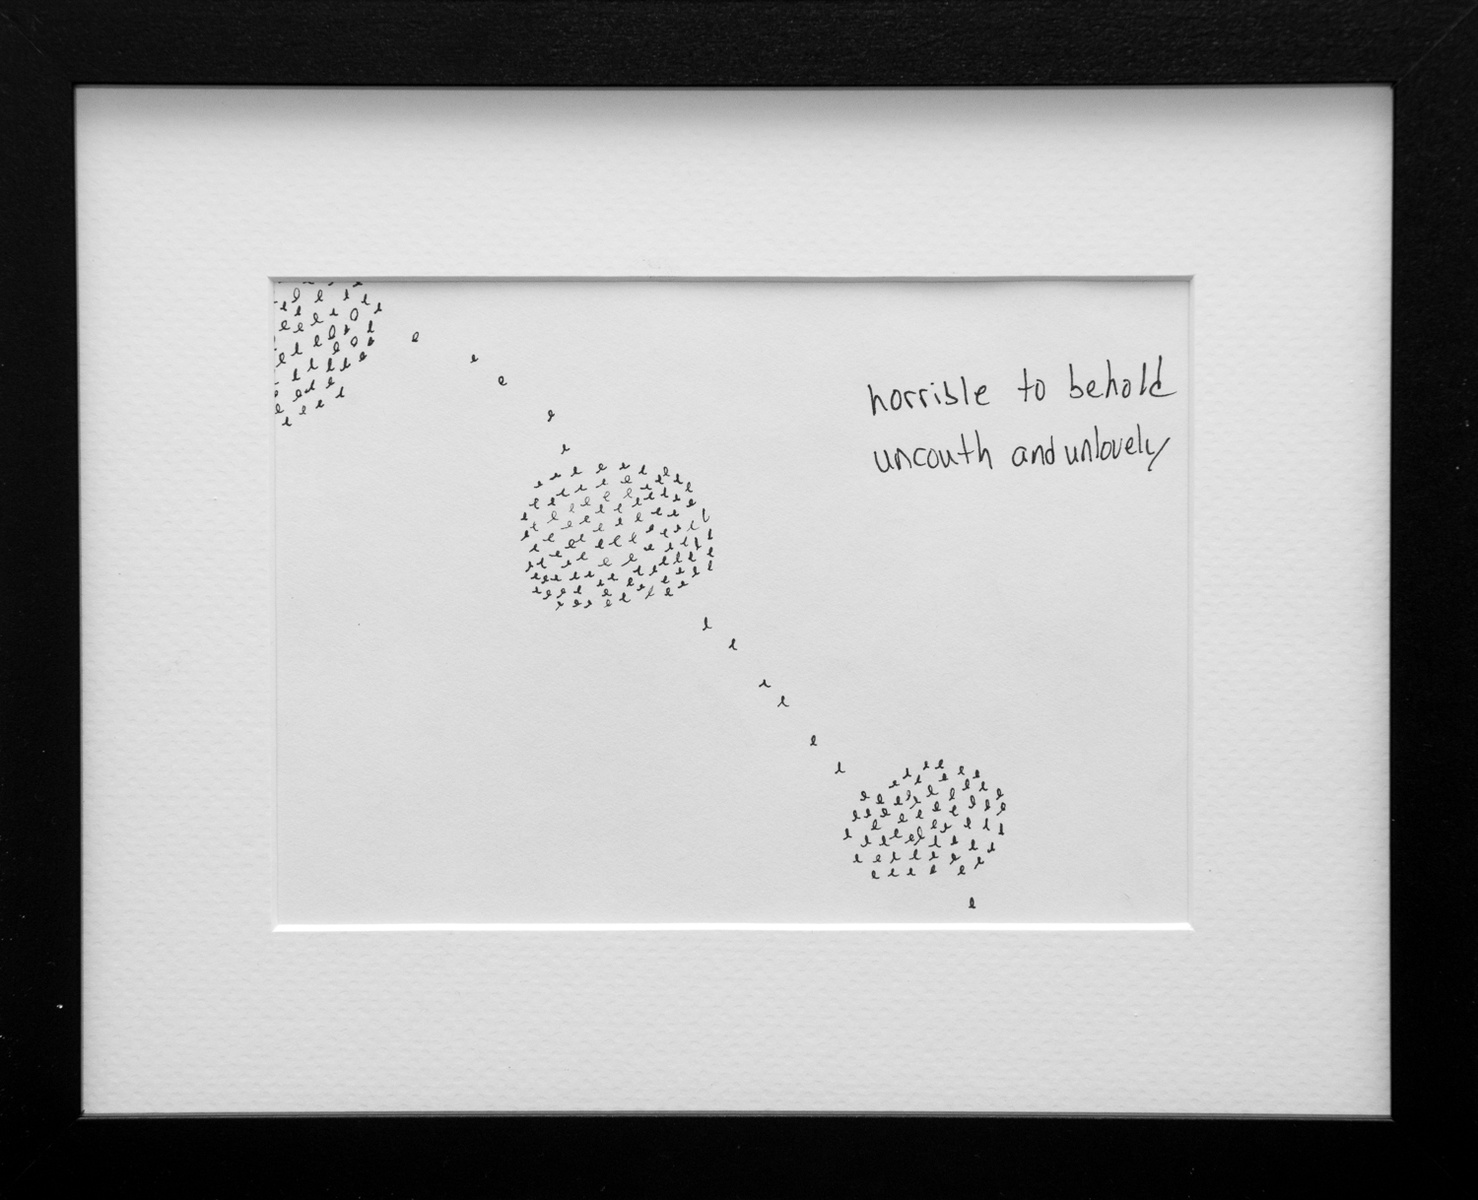 horrible to behold
uncouth and unlovely